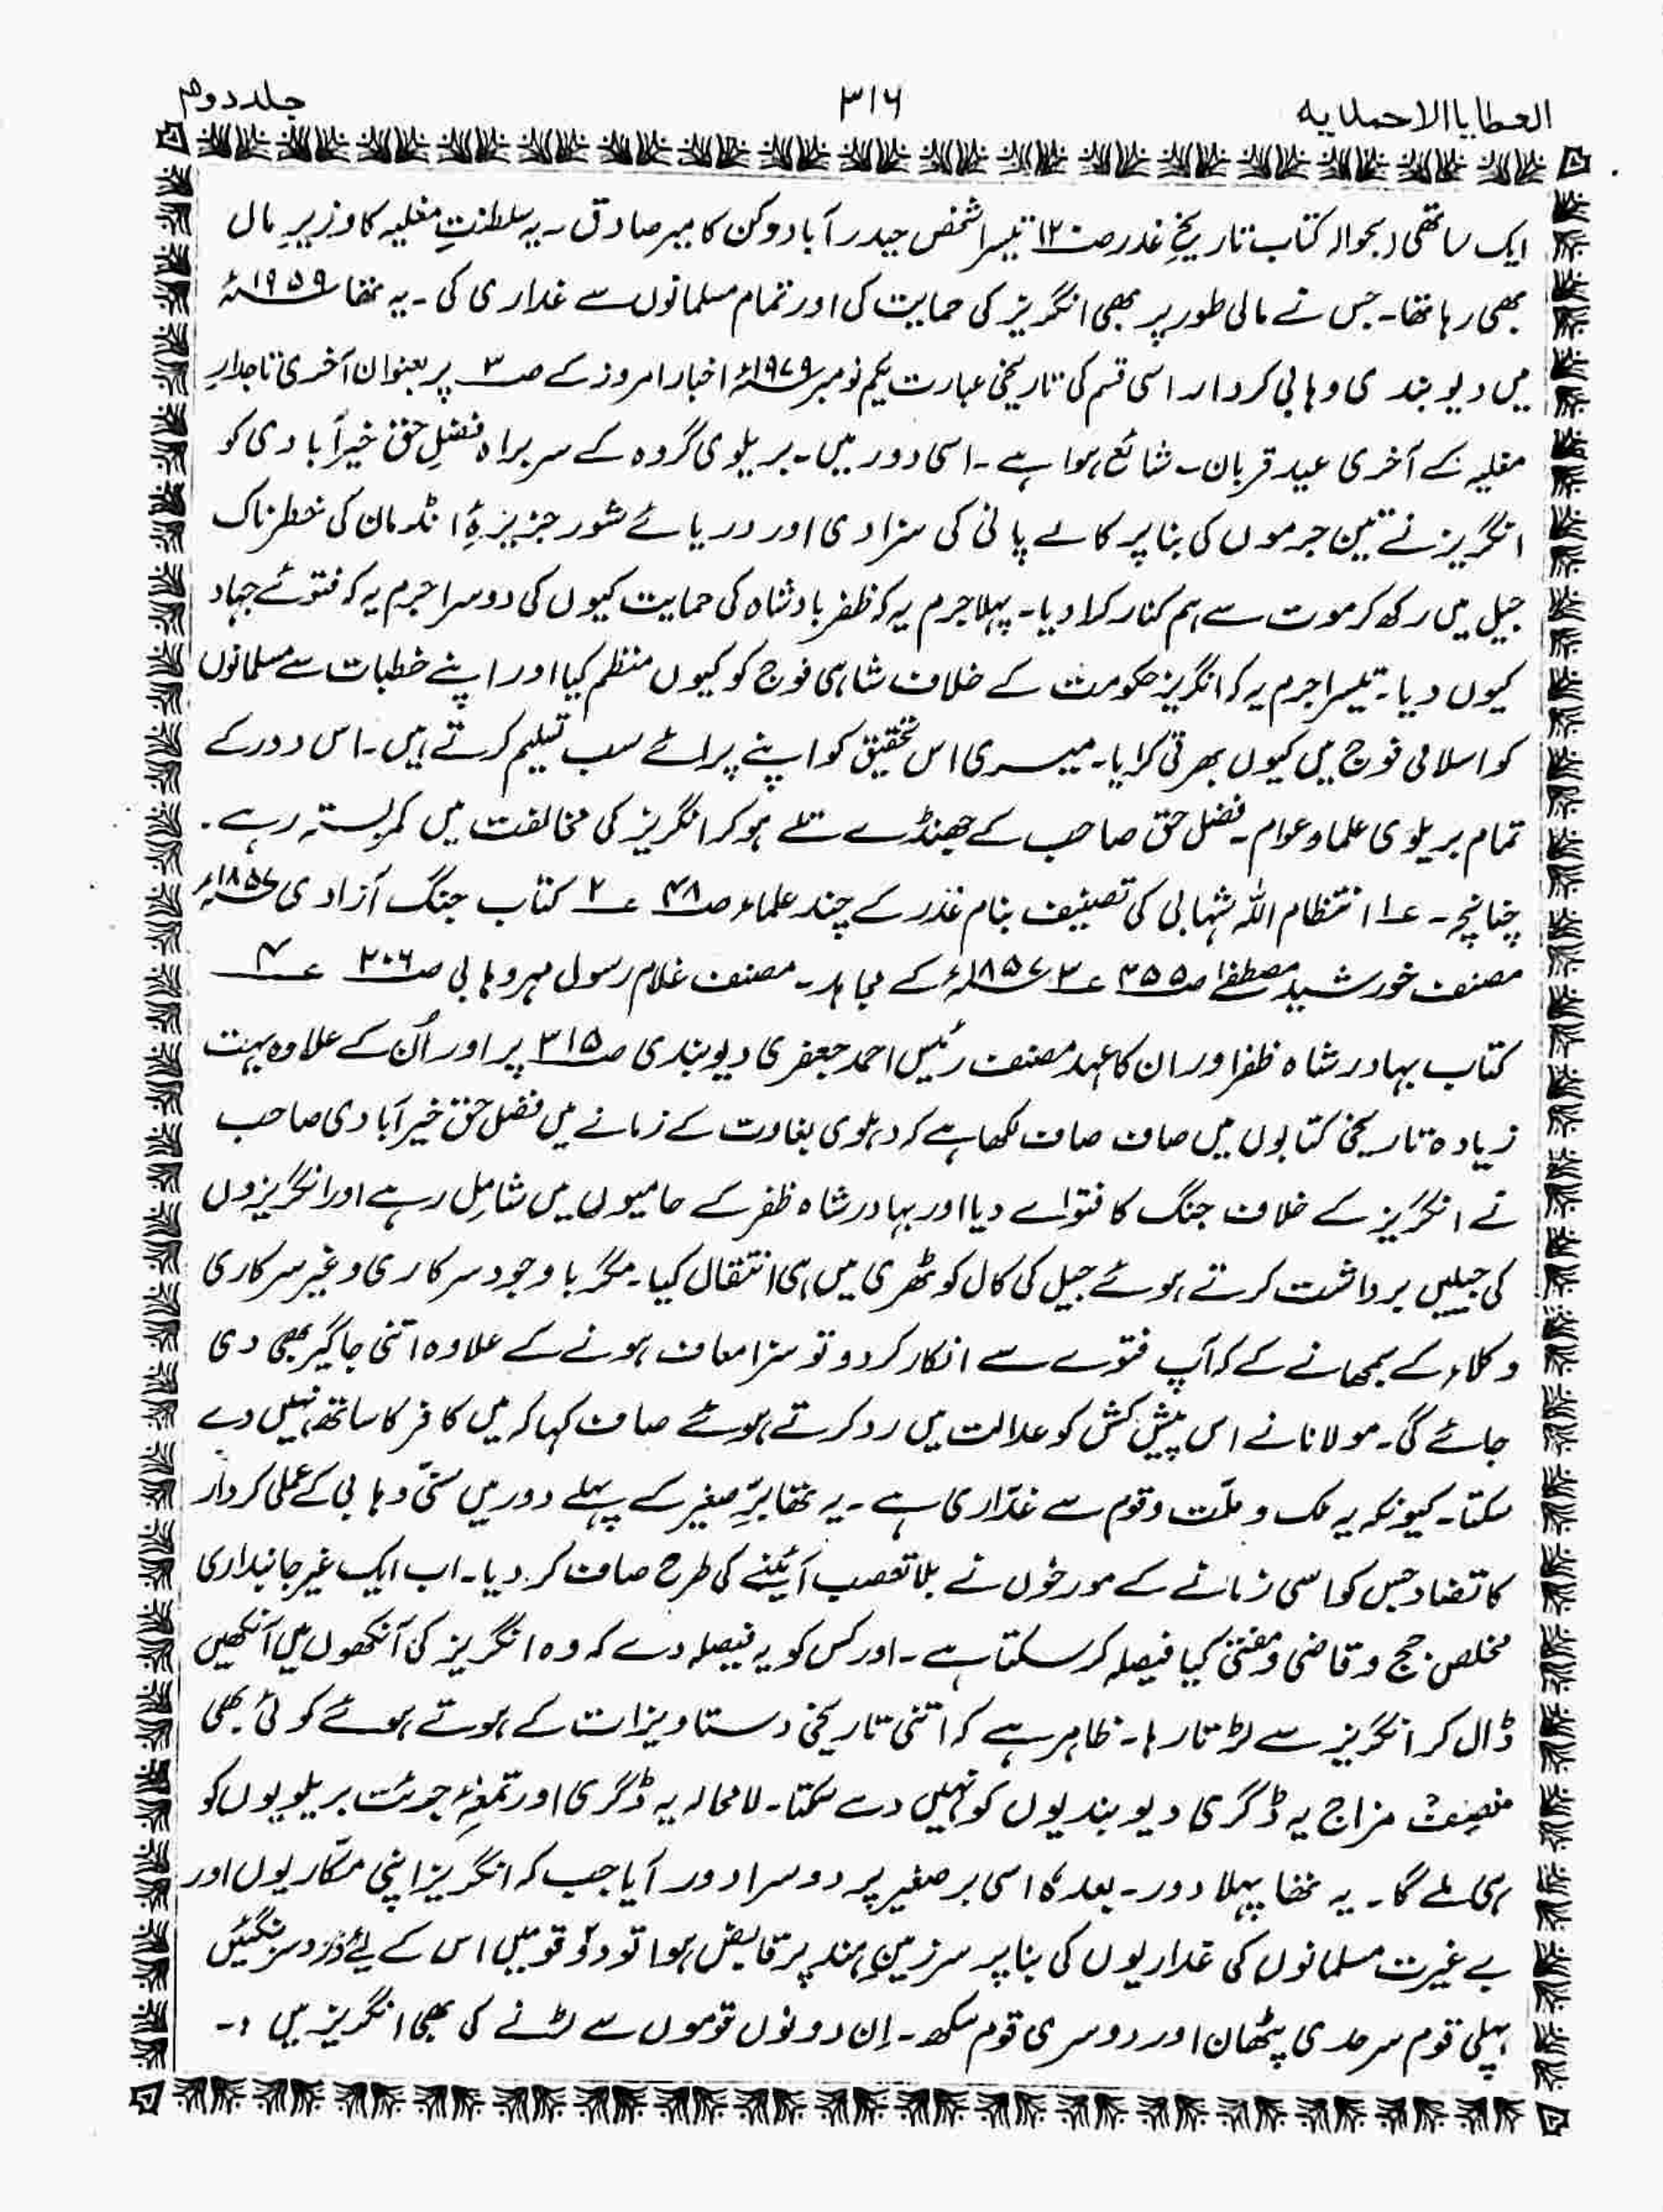 العطایا الاحمدیہ ۳۱۶ جلد دوم
ایک ساتھی (بحوالہ کتاب تاریخِ غدر صـ۱۲۰ تیسرا شخص حیدر آباد دکن کا میر صادق ۔ یہ سلطنتِ مغلیہ کا وزیرِ مال
بھی رہا تھا۔ جس نے مالی طور پر بھی انگریز کی حمایت کی اور تمام مسلمانوں سے غداری کی ۔ یہ تھا ۱۹۵۹ء
میں دیوبندی وہابی کردار۔ اسی قسم کی تاریخی عبارت یکم نومبر ۱۹۷۹ء اخبار امروز کے صـ۳ پر بعنوان آخری تاجدارِ
مغلیہ کے آخری عید قربان۔ شائع ہوا ہے ۔ اسی دور میں ۔ بریلوی گروہ کے سربراہ فضلِ حق خیرآبادی کو
انگریز نے تین جرموں کی بنا پر کالے پانی کی سزا دی اور دریائے شور جزیرۂ انڈمان کی خطرناک
جیل میں رکھ کر موت سے ہم کنار کرا دیا ۔ پہلا جرم یہ کہ ظفر بادشاہ کی حمایت کیوں کی دوسرا جرم یہ کہ فتوئے جہاد
کیوں دیا۔ تیسرا جرم یہ کہ انگریز حکومت کے خلاف شاہی فوج کو کیوں منظم کیا اور اپنے خطبات سے مسلمانوں
کو اسلامی فوج میں کیوں بھرتی کرایا۔ میری اس تحقیق کو اپنے پرائے سب تسلیم کرتے ہیں ۔ اس دور کے
تمام بریلوی علما و عوام ۔ فضل حق صاحب کے جھنڈے تلے ہو کر انگریز کی مخالفت میں کمربستہ رہے ۔
چنانچہ ۔ عـ۱ انتظام اللہ شہابی کی تصنیف بنام غدر کے چند علماء صـ۴۸ عـ۲ کتاب جنگ آزادی ۱۸۵۷ء
مصنف خورشید مصطفےٰ صـ۳۵۵ عـ۳ ۱۸۵۷ء کے مجاہد۔ مصنف غلام رسول مہر وہابی صـ۲۰۶ عـ۴
کتاب بہادر شاہ ظفر اور ان کا عہد مصنف رئیس احمد جعفری دیوبندی صـ۳۱۵ پر اور اُن کے علاوہ بہت
زیادہ تاریخی کتابوں میں صاف صاف لکھا ہے کہ دہلوی بغاوت کے زمانے میں فضل حق خیرآبادی صاحب
نے انگریز کے خلاف جنگ کا فتوٰے دیا اور بہادر شاہ ظفر کے حامیوں میں شامل رہے اور انگریزوں
کی جیلیں برداشت کرتے ہوئے جیل کی کال کوٹھری میں ہی انتقال کیا۔ مگر باوجود سرکاری و غیر سرکاری
وکلاء کے سمجھانے کے کہ آپ فتوے سے انکار کر دو تو سزا معاف ہونے کے علاوہ اتنی جاگیر بھی دی
جائے گی۔ مولانا نے اس پیش کش کو عدالت میں رد کرتے ہوئے صاف کہا کہ میں کافر کا ساتھ نہیں دے
سکتا ۔ کیونکہ یہ ملک و ملّت و قوم سے غدّاری ہے ۔ یہ تھا برِّصغیر کے پہلے دور میں سنّی وہابی کے عملی کردار
کا تضاد جس کو اسی زمانے کے مورخوں نے بلاتعصب آئینے کی طرح صاف کر دیا۔ اب ایک غیر جانبداری
مخلص جج و قاضی و مفتی کیا فیصلہ کر سکتا ہے ۔ اور کس کو یہ فیصلہ دے کہ وہ انگریز کی آنکھوں میں آنکھیں
ڈال کر انگریز سے لڑتا رہا ۔ ظاہر ہے کہ اتنی تاریخی دستاویزات کے ہوتے ہوئے کوئی بھی
منصف مزاج یہ ڈگری دیوبندیوں کو نہیں دے سکتا۔ لامحالہ یہ ڈگری اور تمغۂ جرئت بریلویوں کو
ہی ملے گا۔ یہ تھا پہلا دور ۔ بعدہٗ اسی برصغیر پر دوسرا دور آیا جب کہ انگریز اپنی مکّاریوں اور
بے غیرت مسلمانوں کی غداریوں کی بنا پر سرزمینِ ہند پر قابض ہوا تو دو قومیں اس کے لئے دردِ سر بنگئیں
پہلی قوم سرحدی پٹھان اور دوسری قوم سکھ ۔ اِن دونوں قوموں سے لڑنے کی بھی انگریز میں :۔